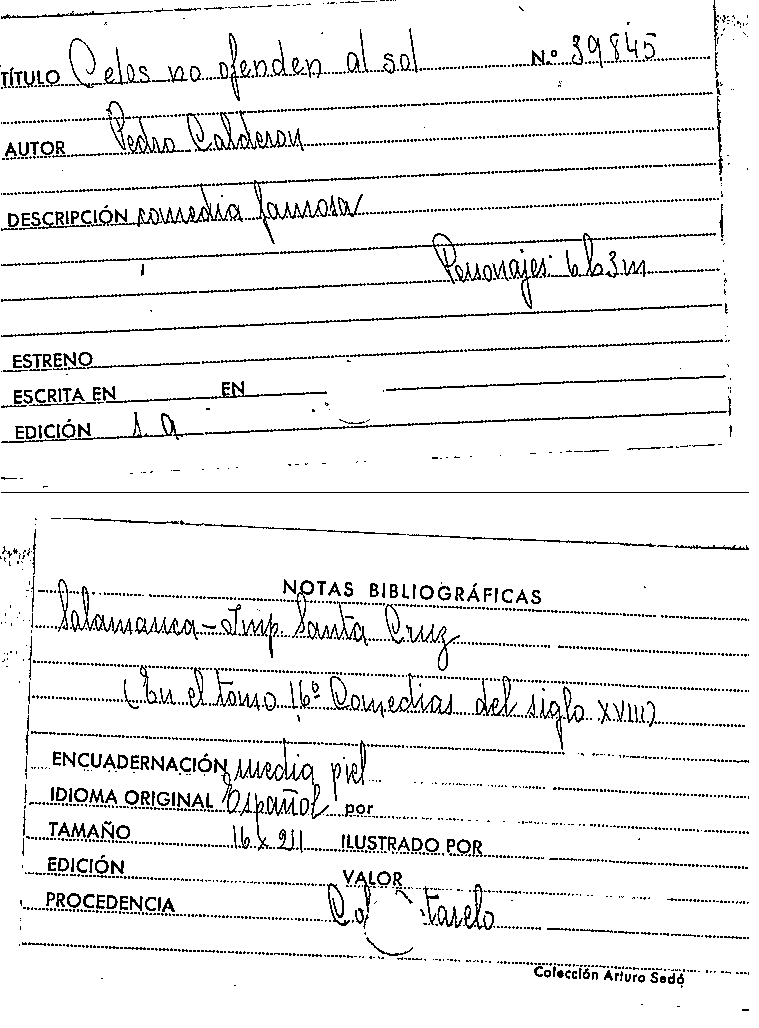 TÍTULO Celos no ofenden al sol N.º 39845
AUTOR Pedro Calderon
DESCRIPCIÓN comedia famosa
Personajes 6 h 3 m
ESTRENO
ESCRITA EN EN
EDICIÓN s. a
NOTAS BIBLIOGRÁFICAS
Salamanca - Imp Santa Cruz
(En el tomo 16º Comedias del siglo XVIII)
ENCUADERNACIÓN media piel
IDIOMA ORIGINAL Español por
TAMAÑO 16 x 211 ILUSTRADO POR
EDICIÓN VALOR
PROCEDENCIA
Colección Arturo Sedó